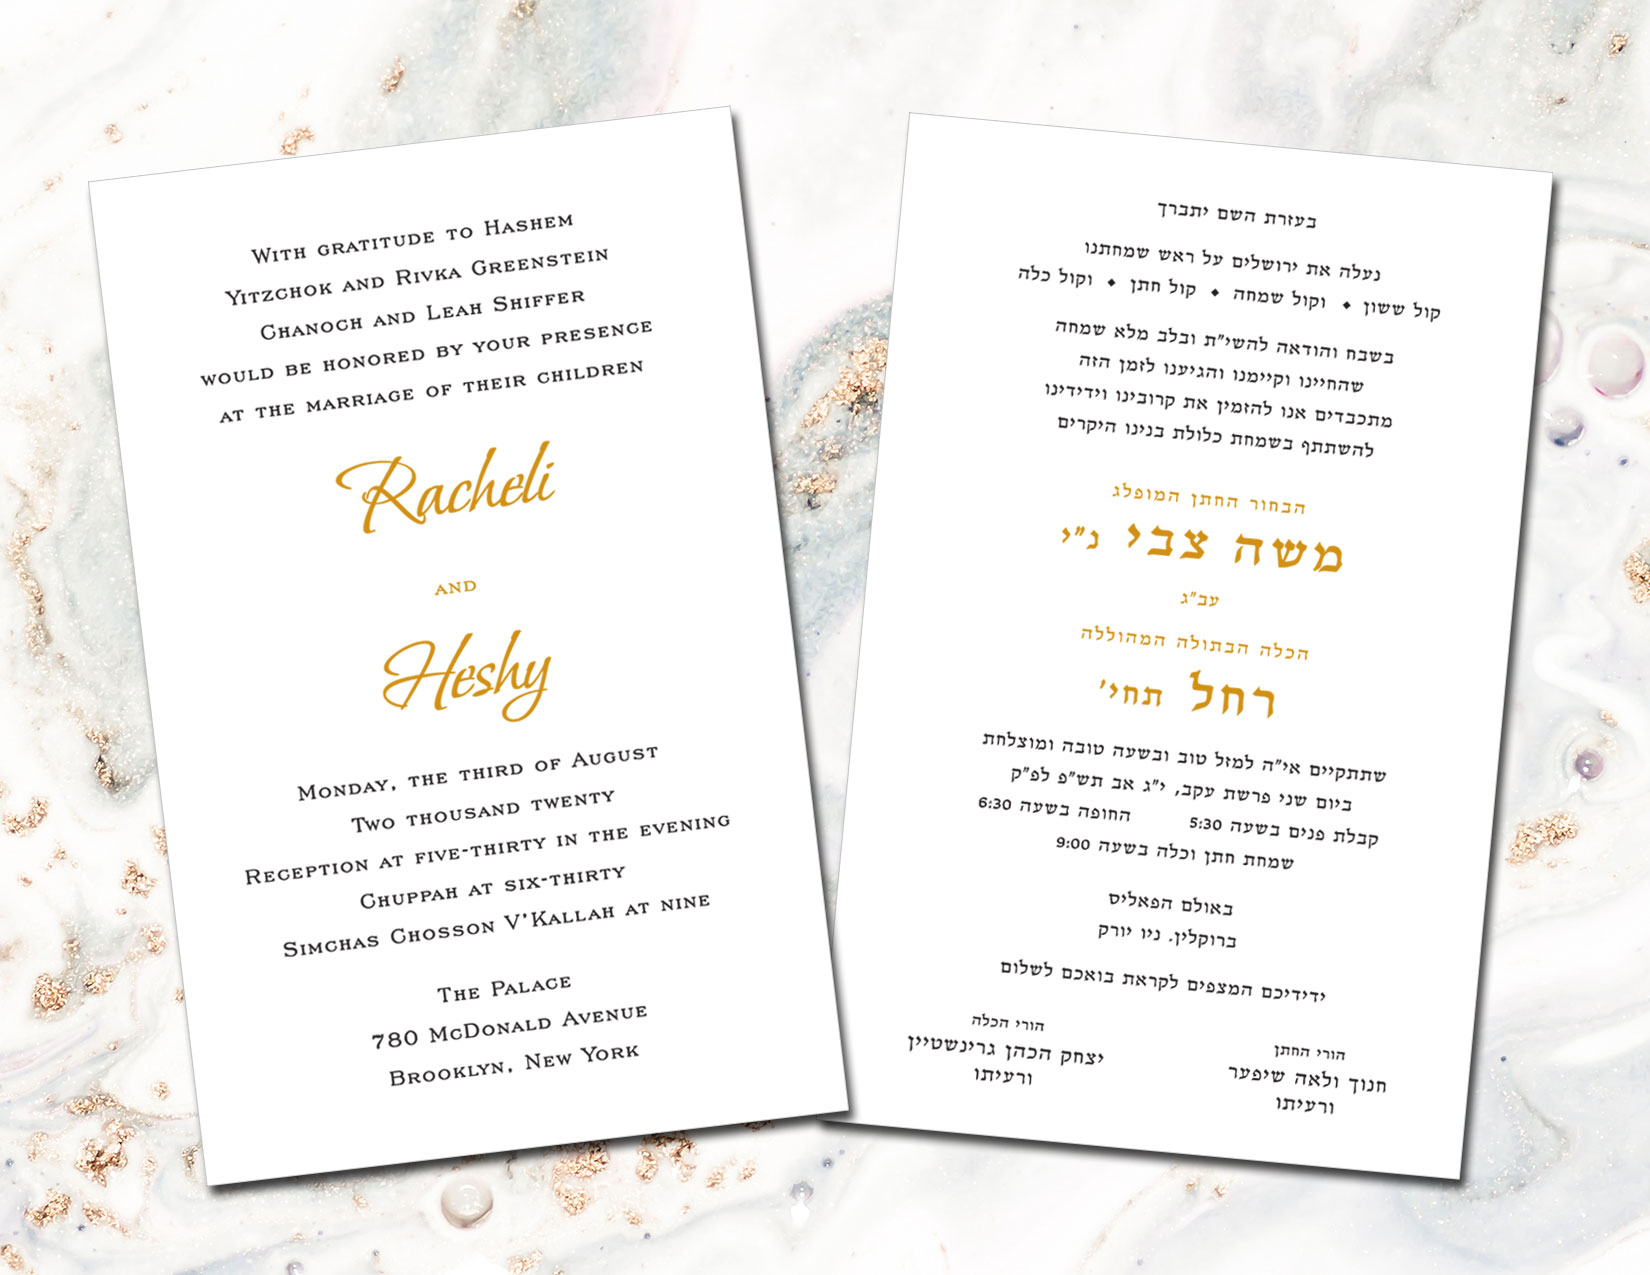 With gratitude to Hashem
Yitzchok and Rivka Greenstein
Chanoch and Leah Shiffer
would be honored by your presence
at the marriage of their children
Racheli
and
Heshy
Monday, the third of August
Two thousand twenty
Reception at five-thirty in the evening
Chuppah at six-thirty
Simchas Chosson V'Kallah at nine
The Palace
780 McDonald Avenue
Brooklyn, New York
בעזרת השם יתברך
נעלה את ירושלים על ראש שמחתנו
קול ששון ◆ וקול שמחה ◆ קול חתן ◆ וקול כלה
בשבח והודאה להשי"ת ובלב מלא שמחה
שהחיינו וקיימנו והגיענו לזמן הזה
מתכבדים אנו להזמין את קרובינו וידידינו
להשתתף בשמחת כלולת בנינו היקרים
הבחור החתן המופלג
משה צבי נ"י
עב"ג
הכלה הבתולה המהוללה
רחל תחי'
שתתקיים אי"ה למזל טוב ובשעה טובה ומוצלחת
ביום שני פרשת עקב, י"ג אב תש"פ לפ"ק
קבלת פנים בשעה 5:30 החופה בשעה 6:30
שמחת חתן וכלה בשעה 9:00
באולם הפאליס
ברוקלין. ניו יורק
ידידיכם המצפים לקראת בואכם לשלום
הורי החתן
חנוך ולאה שיפער
ורעיתו
הורי הכלה
יצחק הכהן גרינשטיין
ורעיתו